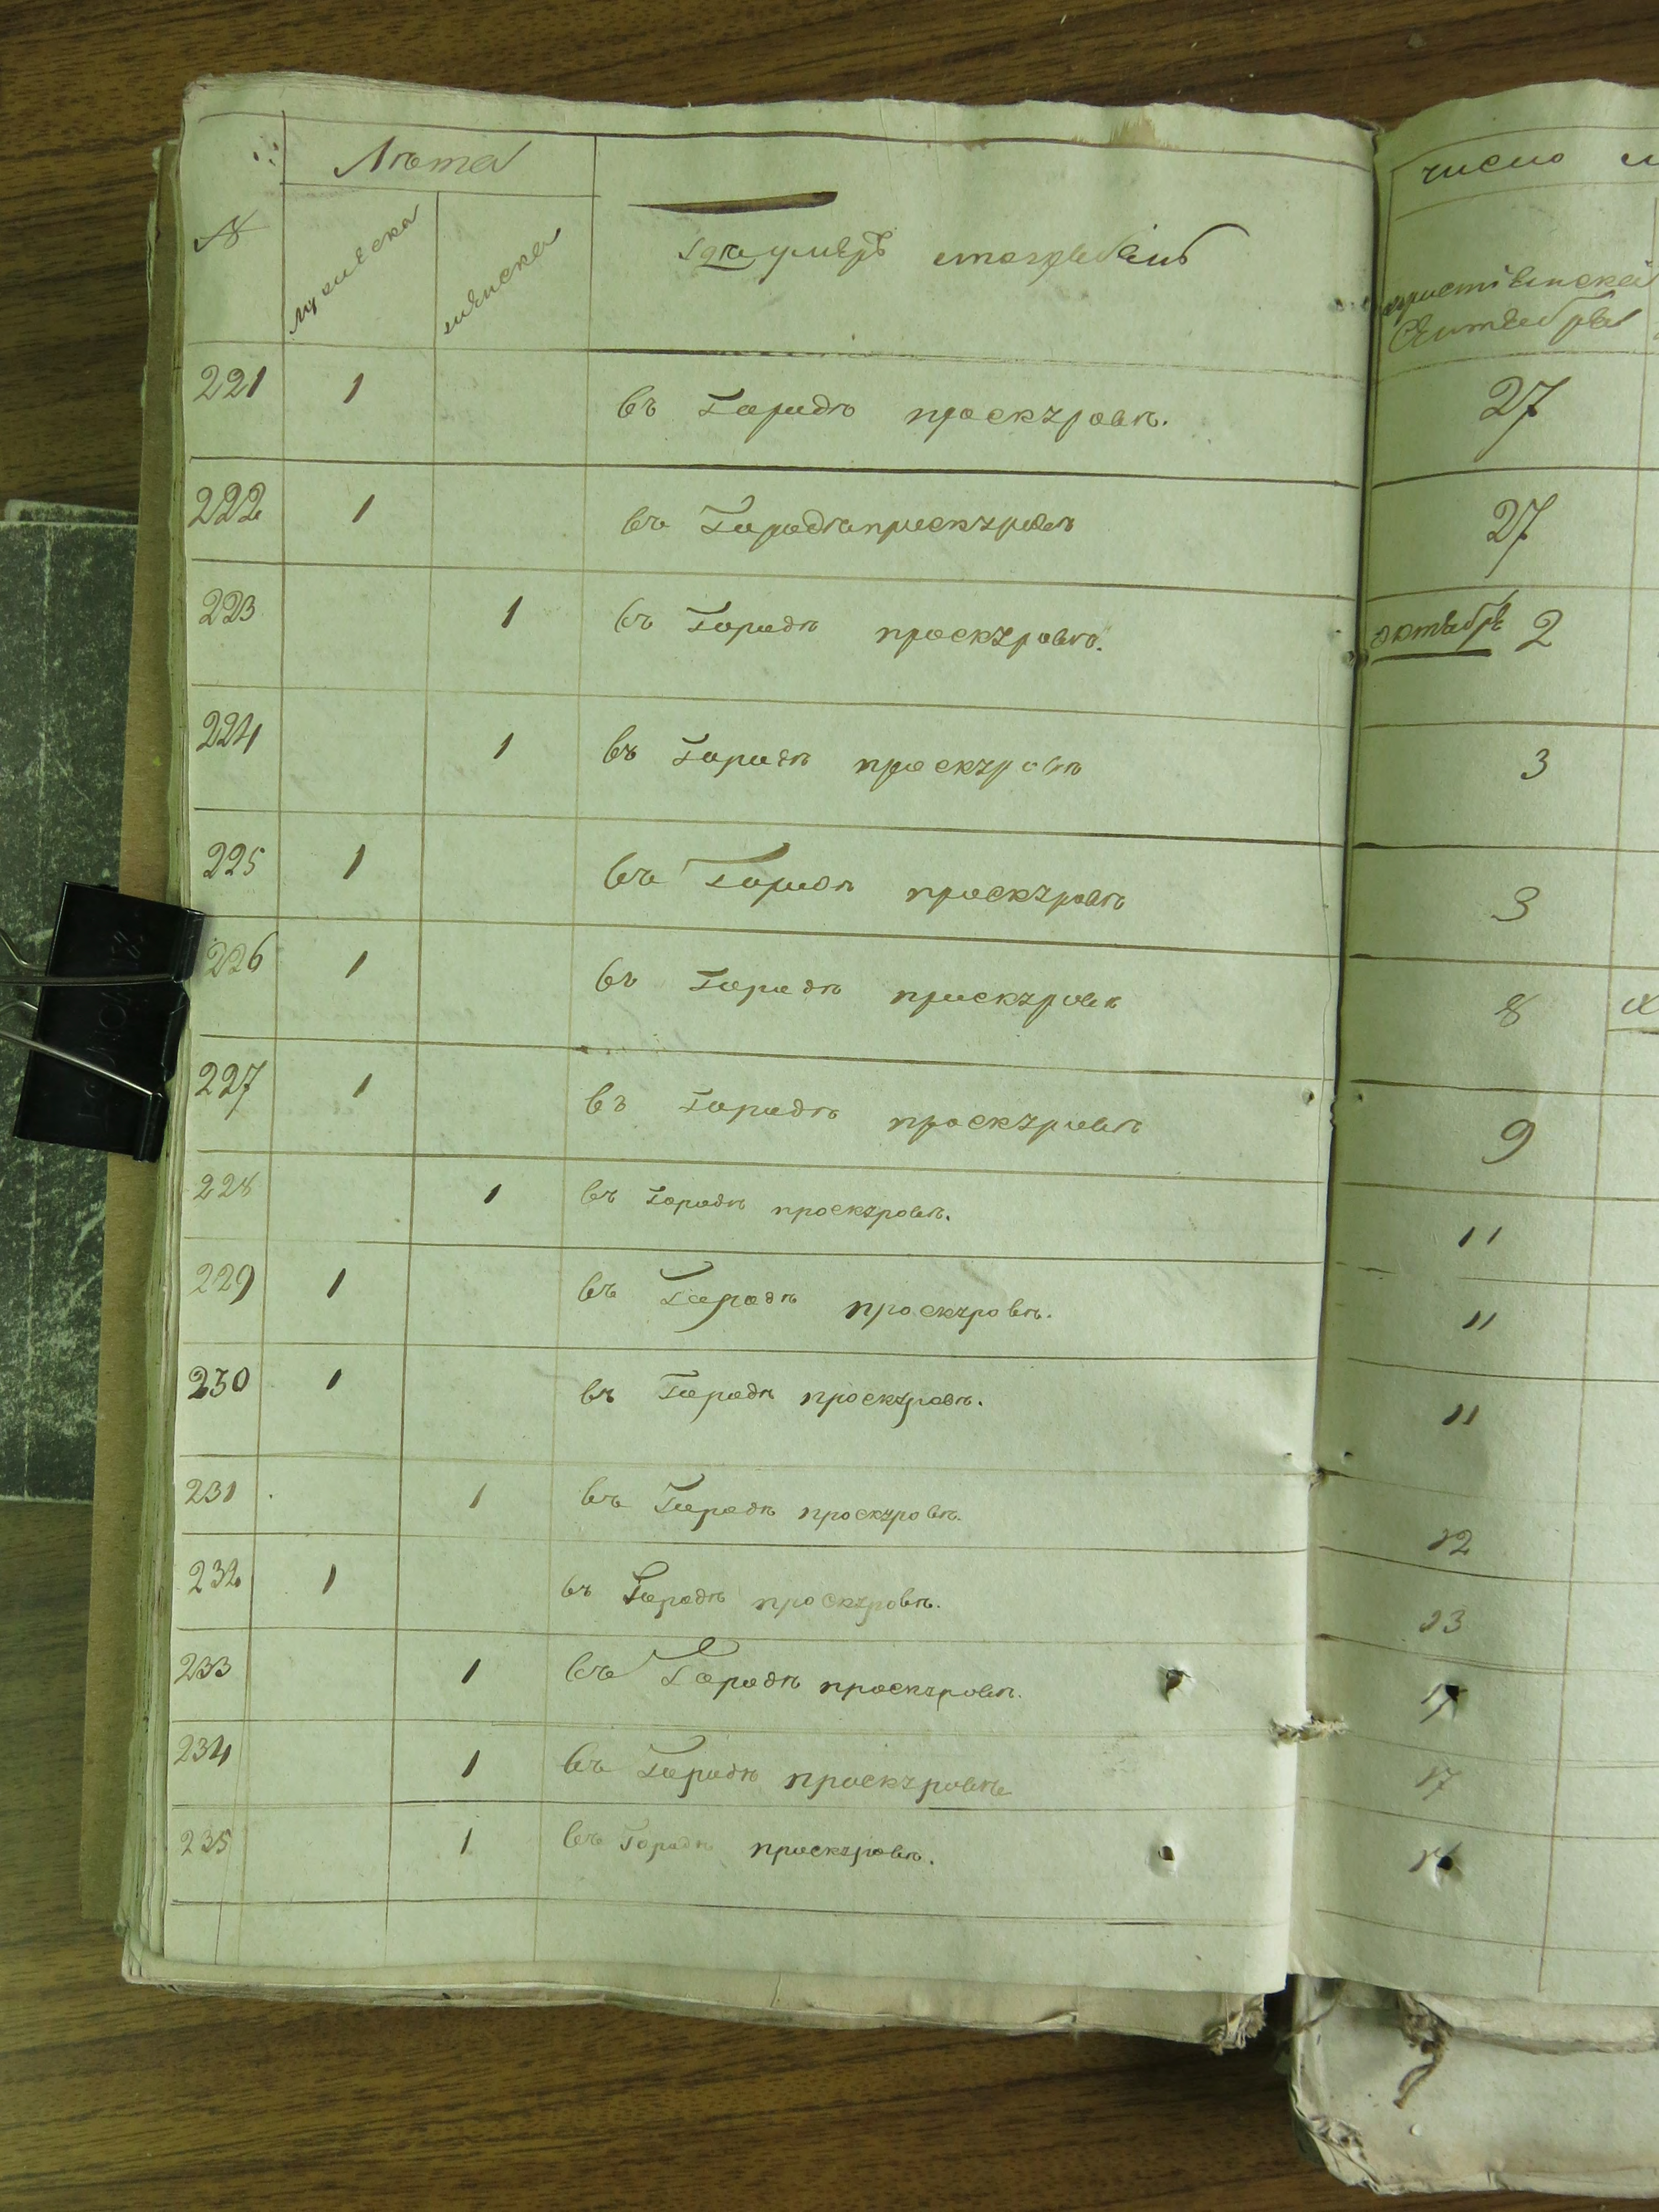 № Лѣта число
мужеска женска гдѣ умеръ и погребенъ христiянскай
Сентебра
221 1 въ Гораде проскуровѣ. 27
222 1 въ Городѣ проскуровѣ 27
223 1 въ Гораде проскуровѣ. октебрь 2
224 1 въ Гораде проскуровѣ 3
225 1 въ Гораде проскуровѣ 3
226 1 въ Гораде проскуровѣ 8
227 1 въ Гораде проскуровѣ 9
228 1 въ Гораде проскуровѣ. 11
229 1 въ Гораде проскуровѣ. 11
230 1 въ Гораде проскуровѣ. 11
231 1 въ Гораде проскуровѣ. 12
232 1 въ Гораде проскуровѣ. 13
233 1 въ Гораде проскуровѣ. 17
234 1 въ Гораде проскуровѣ 17
235 1 въ Гораде проскуровѣ.